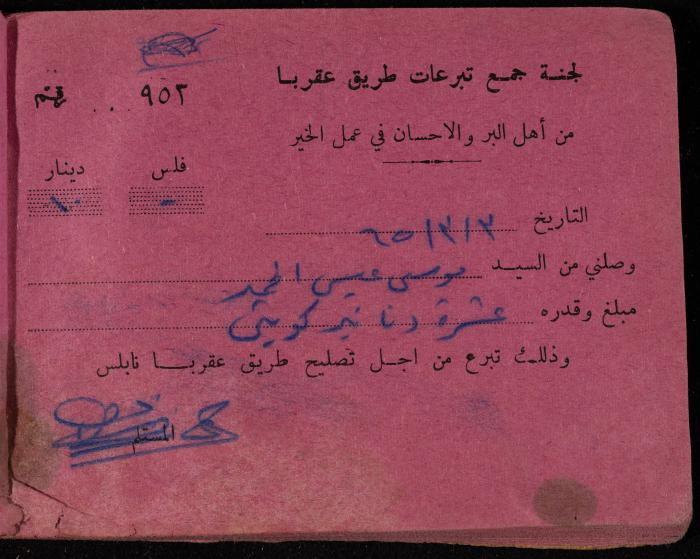 لجنة جمع تبرعات طريق عقربا
رقم ٩٥٢
من أهل البر والاحسان في عمل الخير
فلس دينار
- ١٠
التاريخ ٣/٣/٦٥
وصلني من السيد موسى عيسى الحمد
مبلغ وقدره عشرة دنانير كويتي
وذلك تبرع من اجل تصليح طريق عقربا نابلس
المستلم